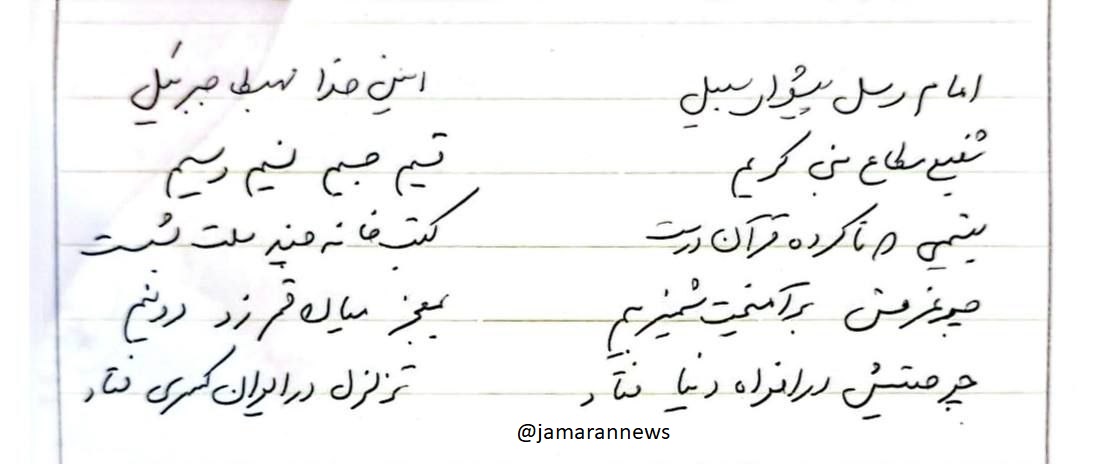 امام رسل پیشوای سبیل امین خدا مهبط جبرئیل
شفیع مطاع نبی کریم قسیم جسیم نسیم وسیم
یتیمی که ناکرده قرآن درست کتب خانه چند ملت بشست
چو عزمش برآهیخت شمشیر بیم بمعجز میان قمر زد دونیم
چو صیتش در افواه دنیا فتاد تزلزل در ایوان کسری فتاد
@jamarannews